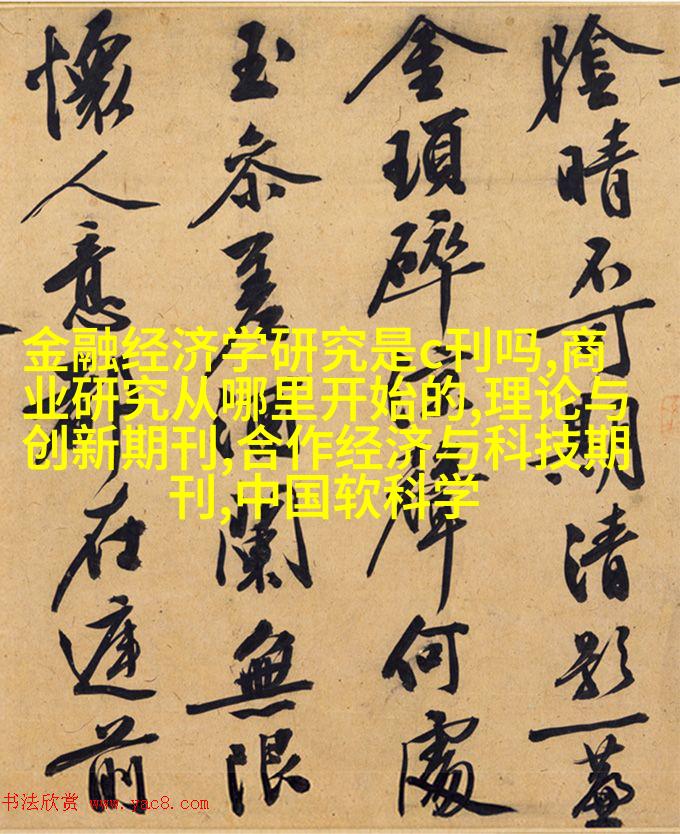 陰晴不可期清影一
金瑣碎聲何處
玉參差闌無限
懷人意在前
金融经济学研究是c刊吗,商
业研究从哪里开始的,理论与
创新期刊,合作经济与科技期
刊,中国软科学
书法欣赏 www.yac8.com